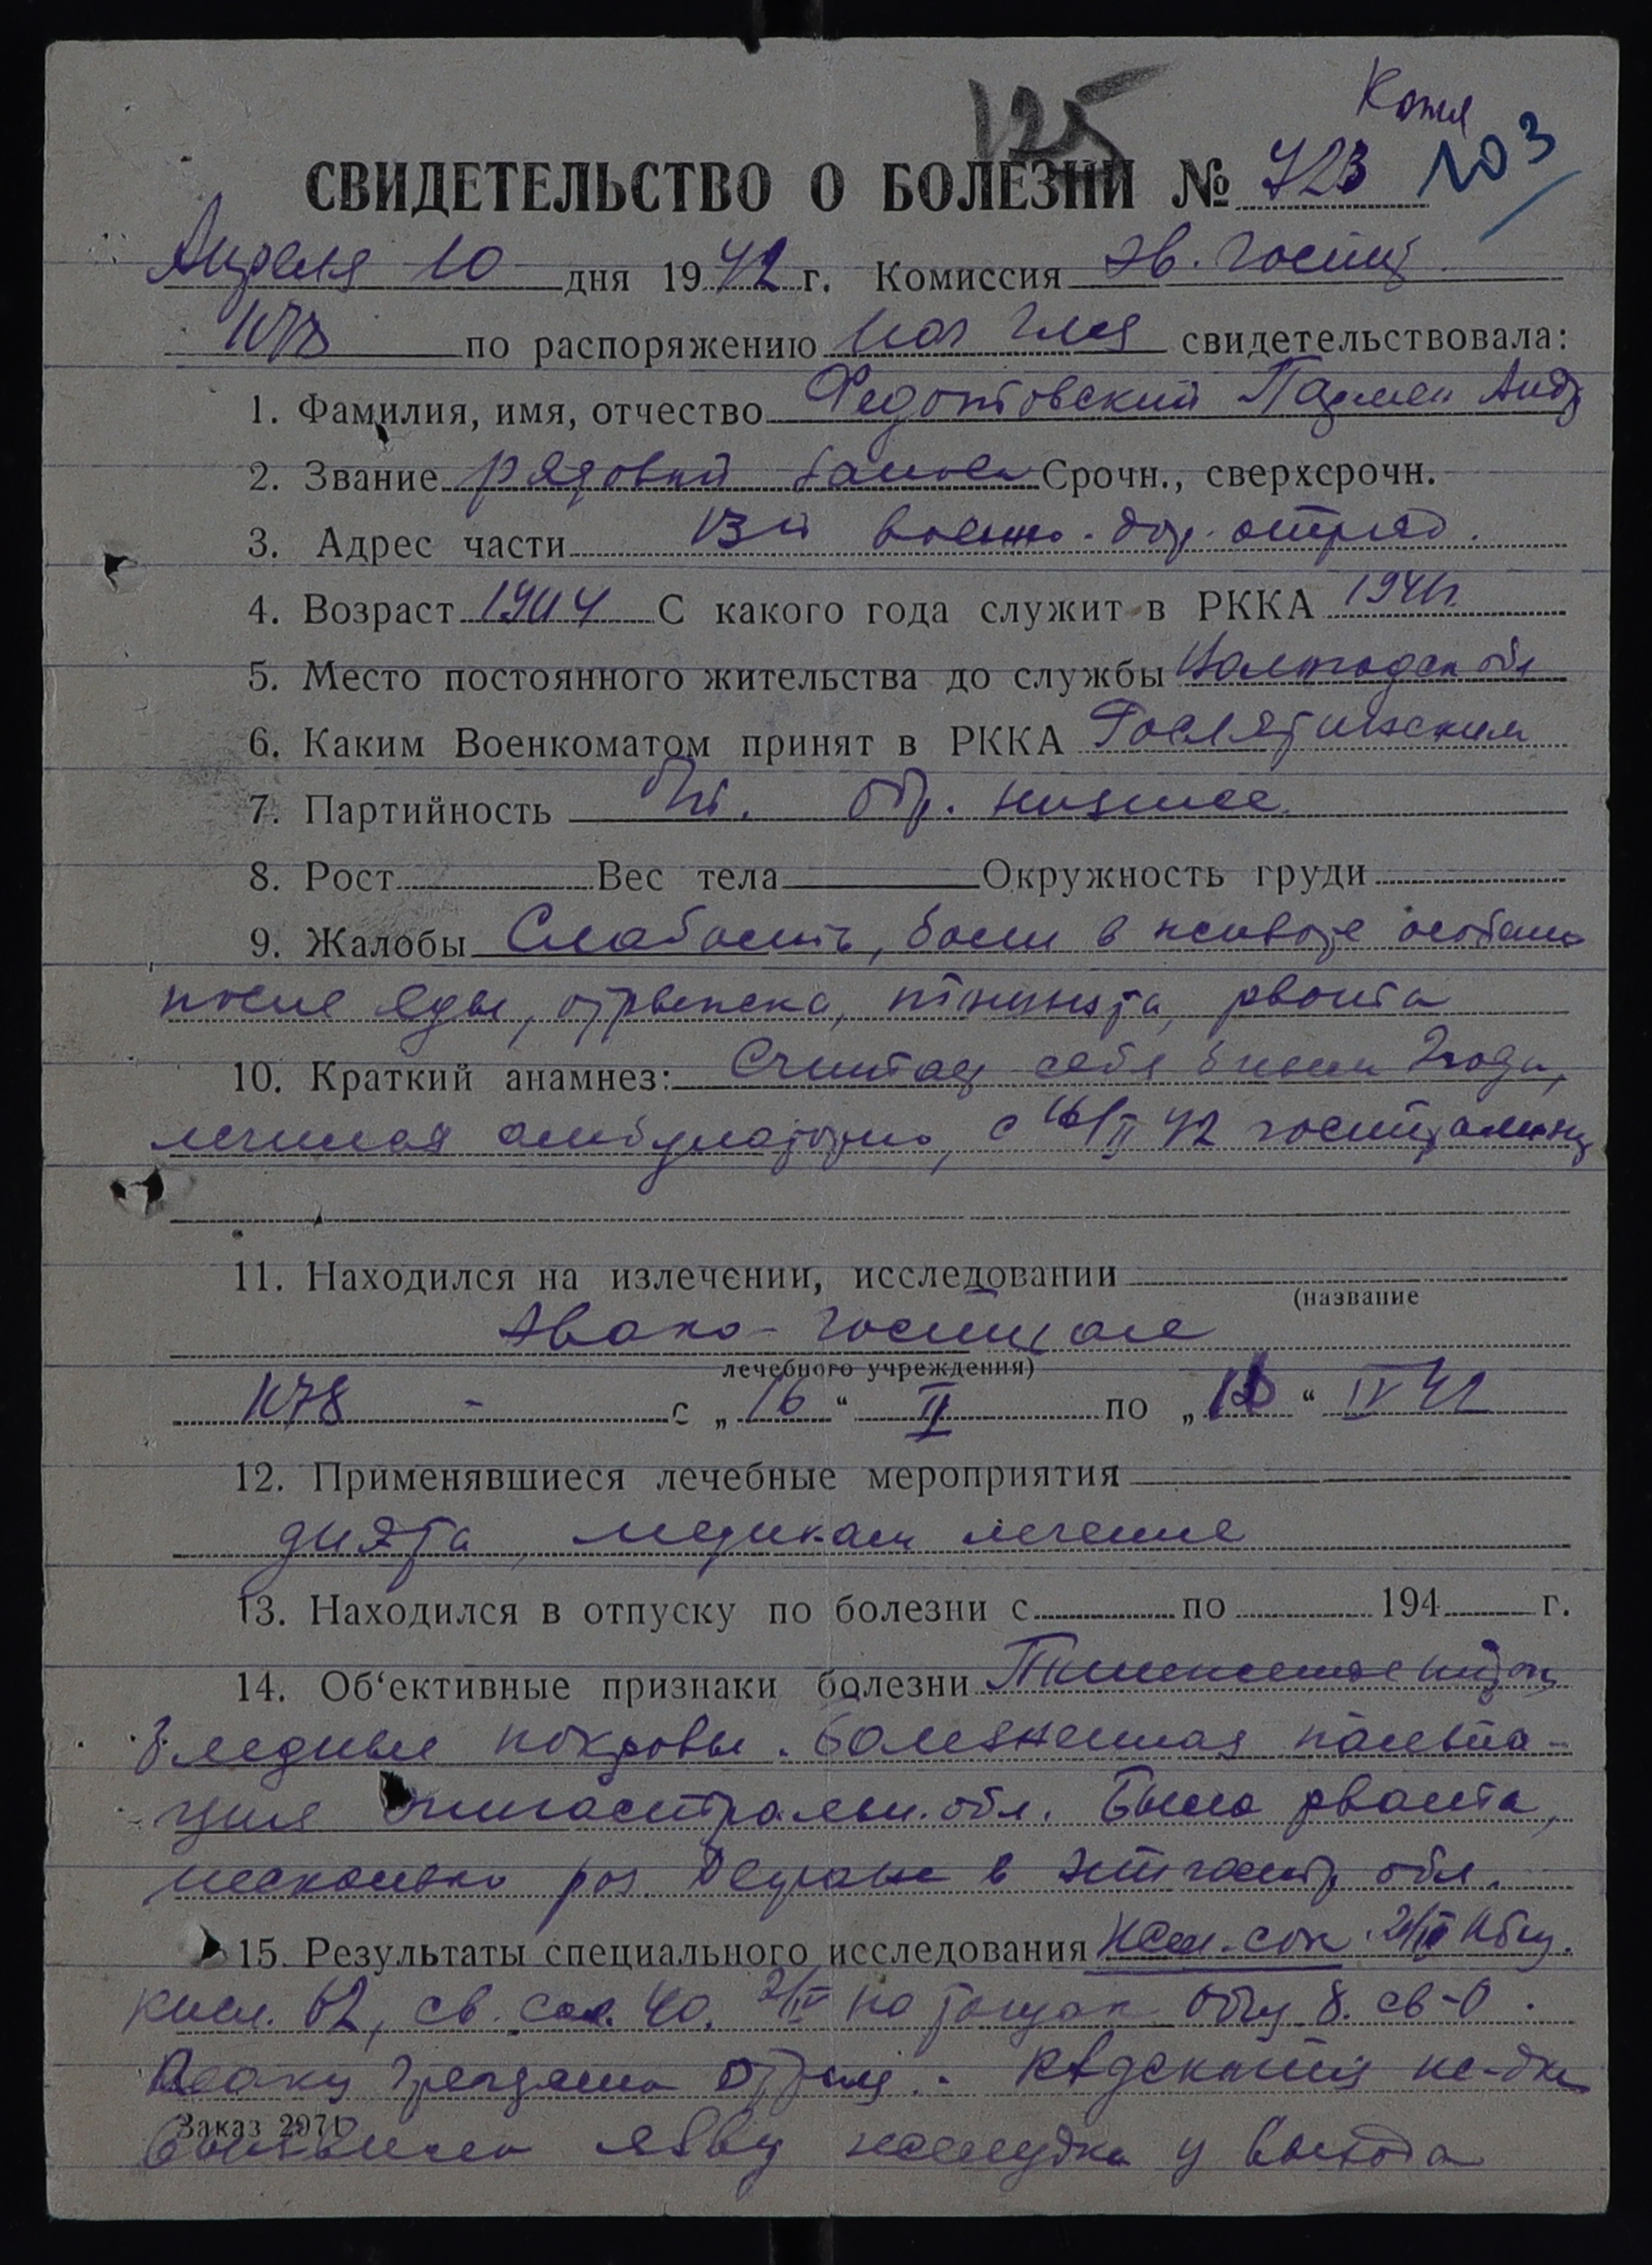 125
Копия
СВИДЕТЕЛЬСТВО О БОЛЕЗНИ № 723 103
Апреля 10 дня 1942 г. Комиссия эв. госпит.
1078 по распоряжению нач. свидетельствовала:
1. Фамилия, имя, отчество Федотовский Пармен Андр
2. Звание рядовой запаса Срочн., сверхсрочн.
3. Адрес части 13й военно-дор. отряд.
4. Возраст 1904 С какого года служит в РККА 1941г.
5. Место постоянного жительства до службы Вологодск обл
6. Каким Военкоматом принят в РККА Рослятинским
7. Партийность б/п. обр. низшее.
8. Рост Вес тела Окружность груди
9. Жалобы Слабость, боли в животе особенно
после еды, отрыжка, тошнота, рвота
10. Краткий анамнез: Считает себя больным 2 года,
лечился амбулаторно, с 16/II 42 госпитализ
11. Находился на излечении, исследовании
(название
Эвако-госпитале
лечебного учреждения)
1078 - с „16“ II по „10“ IV 42
12. Применявшиеся лечебные мероприятия
диэта, медикам лечение
13. Находился в отпуску по болезни с по 194 г.
14. Об‘ективные признаки болезни Пониженное питан
Бледные покровы. Болезненная пальпа-
ция эпигастральн. обл. Была рвота,
несколько раз. в эпигастр. обл.
15. Результаты специального исследования Жел. сок. Общ.
кисл. 62, св. сол. 40. 2/IV на тощак общ 8. св-0.
Реакц Грегерсена отриц. - Рёдскопия жел-дка
выявила язву желудка у выхода
Заказ 2971